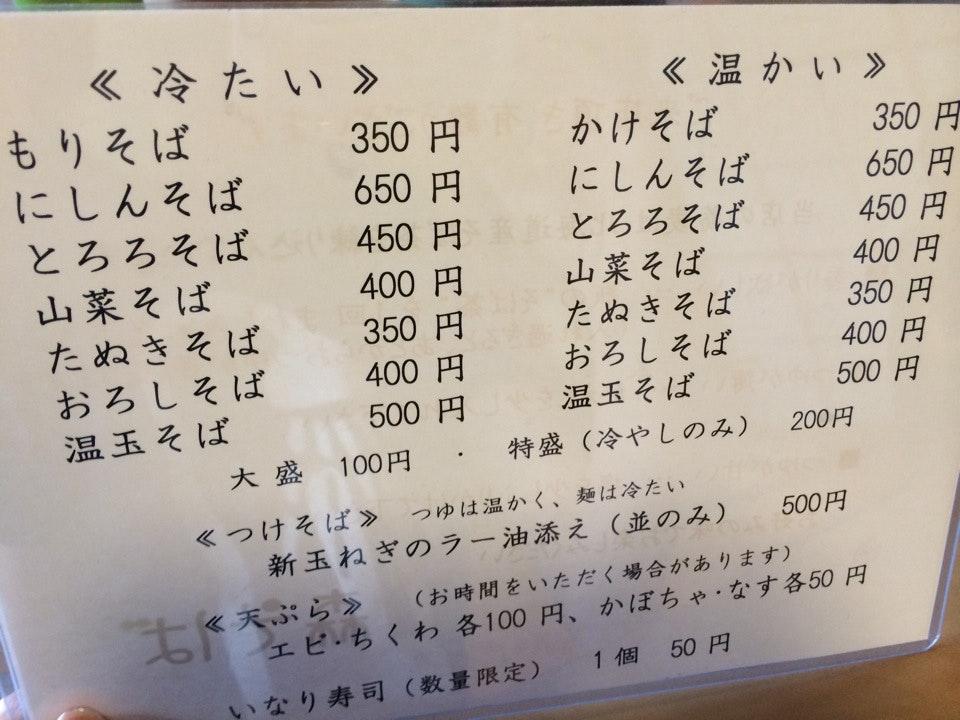 ≪ 冷たい ≫
もりそば 350 円
にしんそば 650 円
とろろそば 450 円
山菜そば 400 円
たぬきそば 350 円
おろしそば 400 円
温玉そば 500 円
≪ 温かい ≫
かけそば 350 円
にしんそば 650 円
とろろそば 450 円
山菜そば 400 円
たぬきそば 350 円
おろしそば 400 円
温玉そば 500 円
大盛 100円 ・ 特盛（冷やしのみ） 200円
≪つけそば≫ つゆは温かく、麺は冷たい
新玉ねぎのラー油添え（並のみ） 500円
≪天ぷら≫ （お時間をいただく場合があります）
エビ・ちくわ 各100 円、かぼちゃ・なす各50 円
いなり寿司（数量限定） 1個 50 円